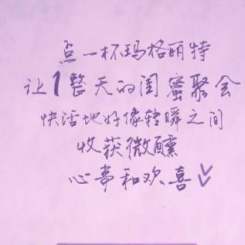 点一杯玛格丽特
让1整天的闺蜜聚会
快活地好像转瞬之间
收获微醺
心事和欢喜